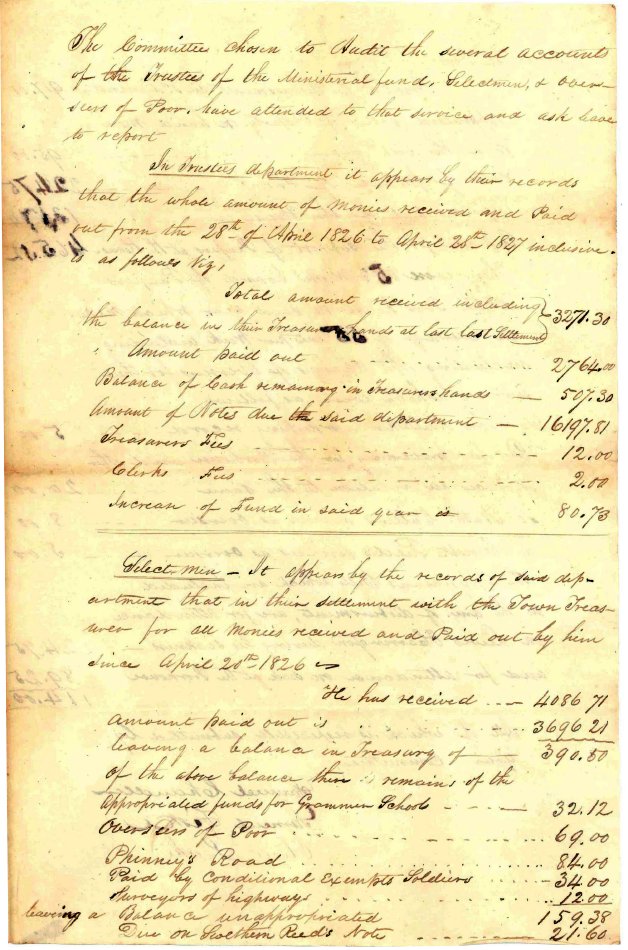 The Committee chosen to Audit the several accounts
of the Trustees of the Ministerial fund, Selectmen, & Over-
seers of Poor, have attended to that service and ask leave
to report
In Trustees department it appears by their records
that the whole amount of Monies received and Paid
out from the 28th of April 1826 to April 28th 1827 inclusive.
is as follows Viz,
Total amount received including
the balance in their Treasurers hands at last last Settlement } 3271.30
" Amount paid out 2764.00
Balance of Cash remaining in Treasurers hands — 507.30
Amount of Notes due the said department — 16197.81
Treasurers Fees 12.00
Clerks Fees 2.00
Increas of Fund in said year is 80.73
Select men — It appears by the records of said dep-
artment that in their settlement with the Town Treas-
urer for all Monies received and Paid out by him
since April 20th 1826
He has received 4086 71
Amount paid out is 3696 21
leaving a balance in Treasury of 390.50
Of the above balance there remains of the
appropriated funds for Grammer Schools 32.12
Overseers of Poor 69.00
Phinney's Road 84.00
Paid by Conditional Exempts Soldiers 34.00
Surveyors of highways 12.00
leaving a Balance unappropriated 159.38
Due on Reeds Note 21.60